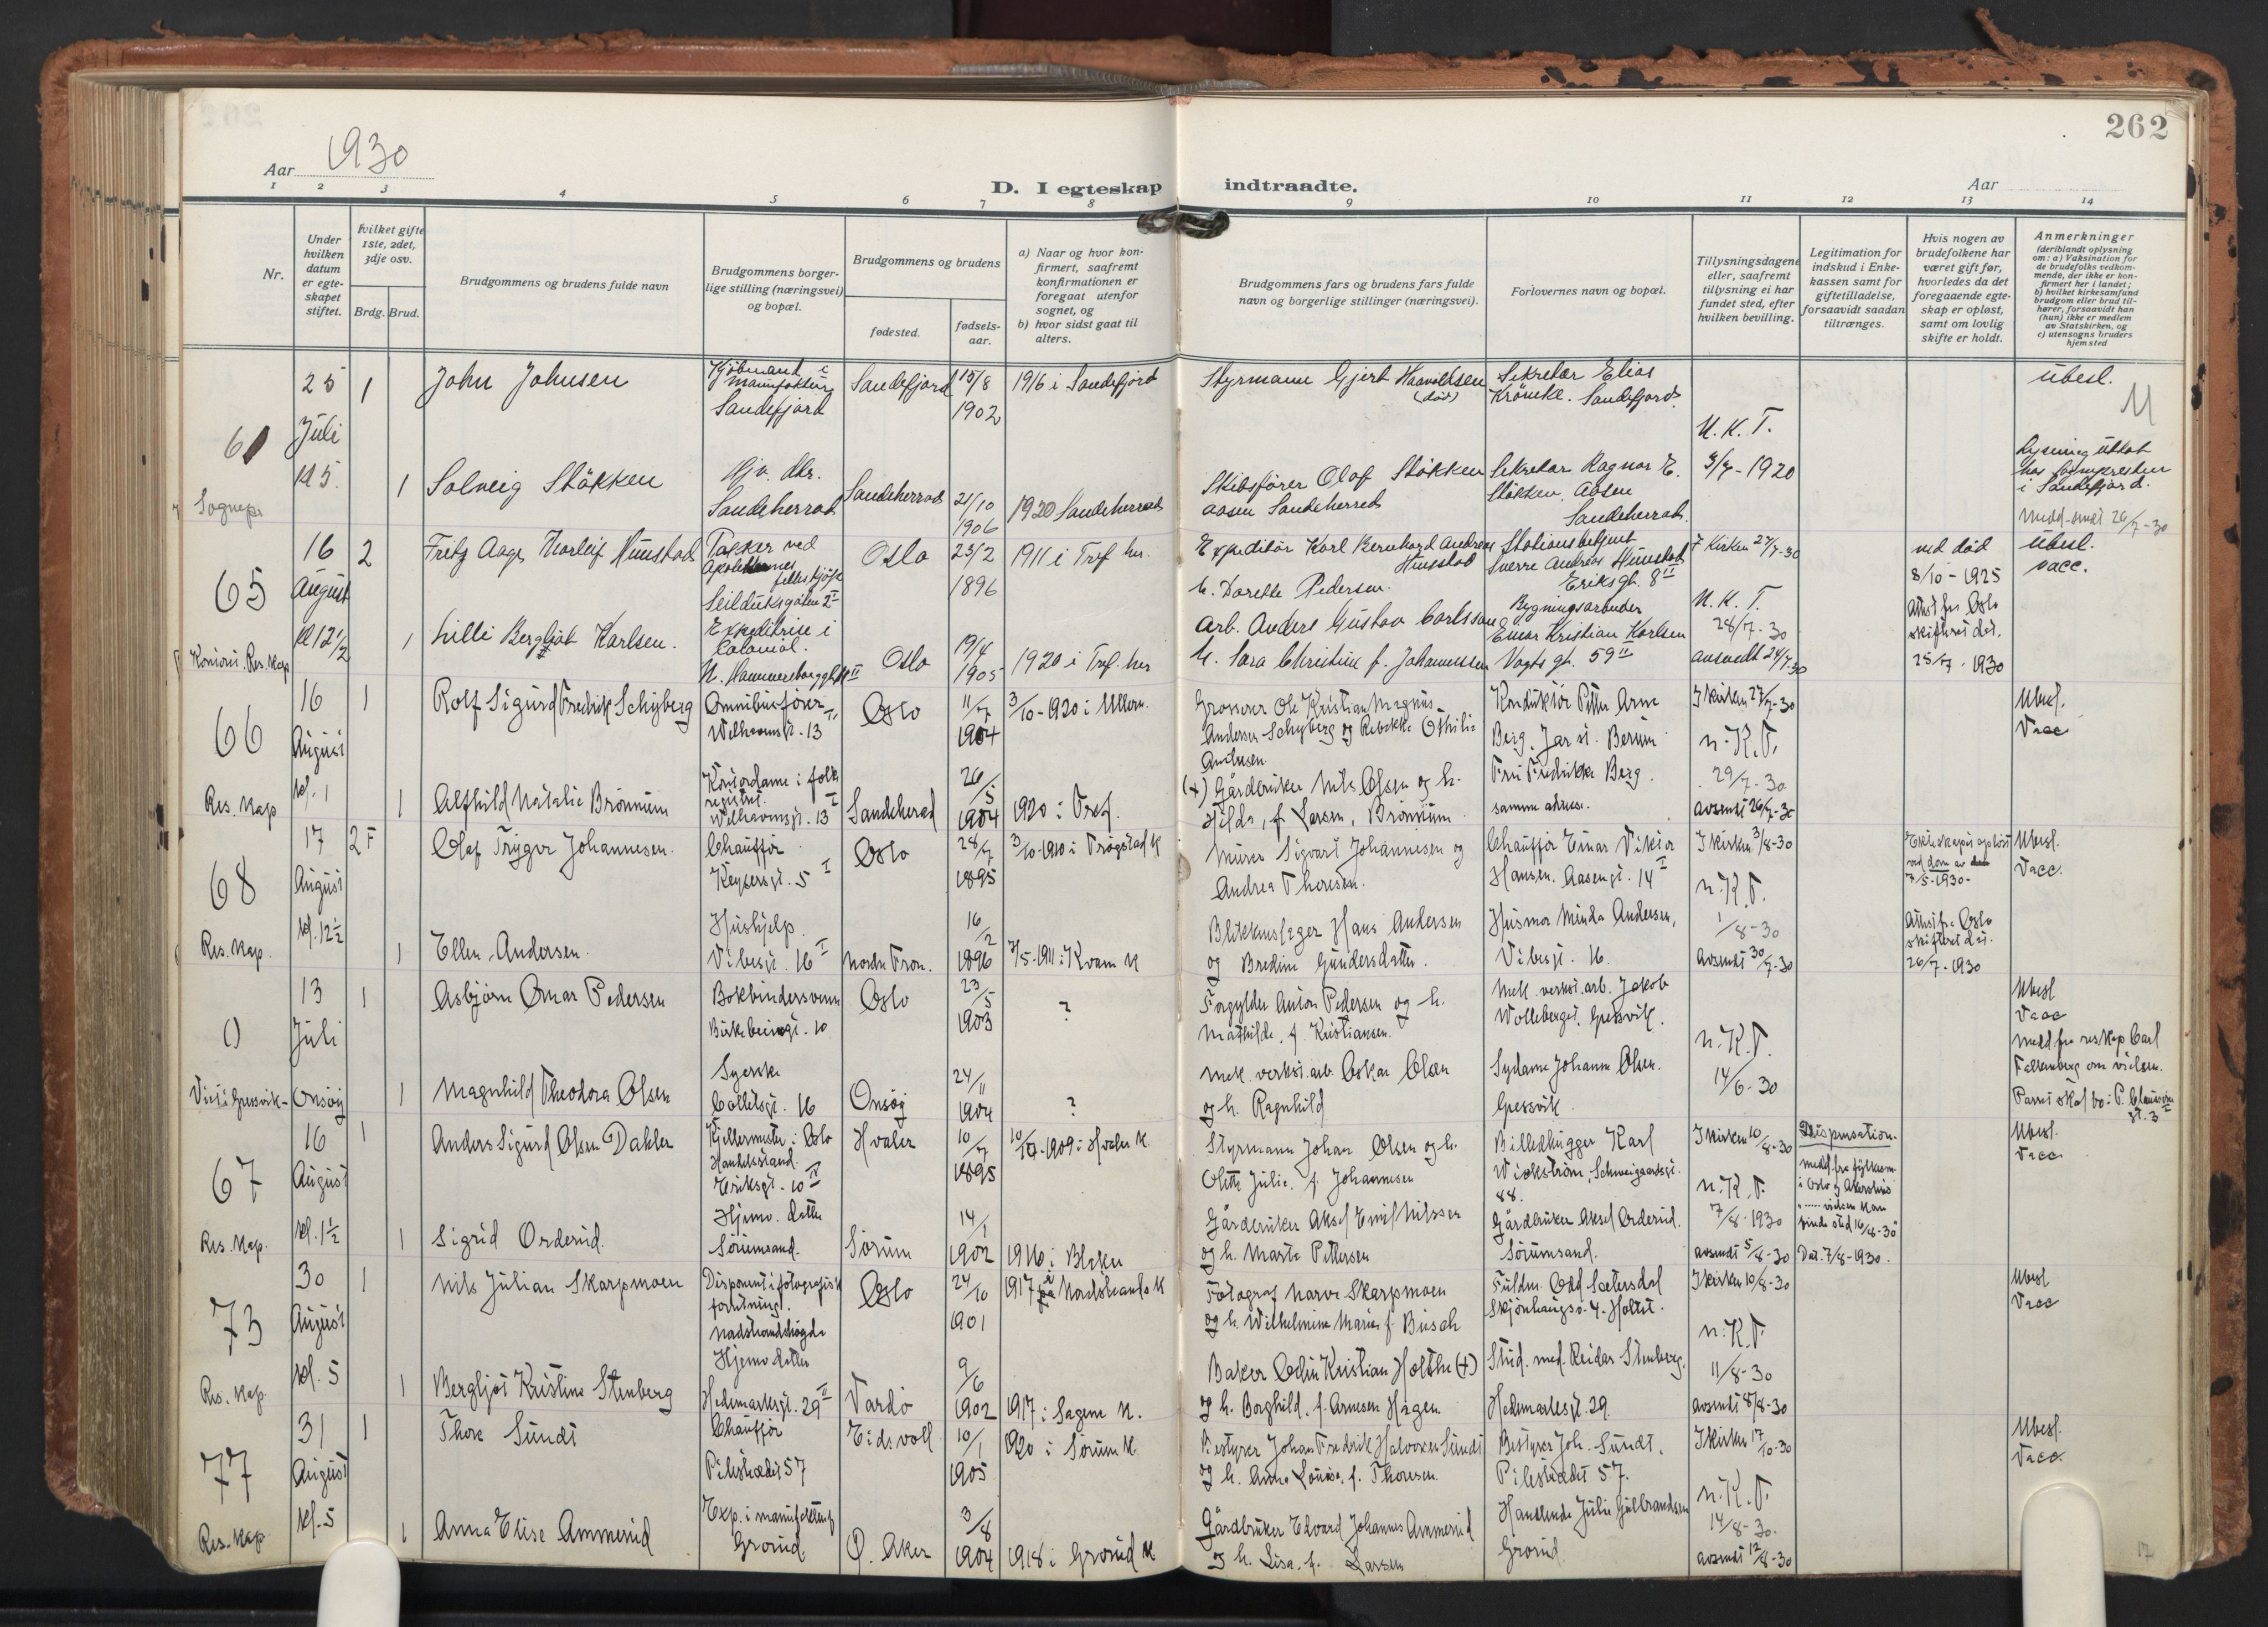 262
Aar 1930
D. I egteskap indtraadte.
Aar
1 2 3 4 5 6 7 8 9 10 11 12 13 14
Nr.
Under hvilken datum er egteskapet stiftet.
Hvilket gifte 1ste, 2det, 3dje osv.
Brdg. Brud.
Brudgommens og brudens fulde navn
Brudgommens borgerlige stilling (næringsvei) og bopæl.
Brudgommens og brudens
fødested.
fødselsaar.
a) Naar og hvor konfirmert, saafremt konfirmationen er foregaat utenfor sognet, og
b) hvor sidst gaat til alters.
Brudgommens fars og brudens fars fulde navn og borgerlige stillinger (næringsvei).
Forlovernes navn og bopæl.
Tillysningsdagene eller, saafremt tillysning ei har fundet sted, efter hvilken bevilling.
Legitimation for indskud i Enkekassen samt for giftetilladelse, forsaavidt saadan tiltrænges.
Hvis nogen av brudefolkene har været gift før, hvorledes da det foregaaende egteskap er opløst, samt om lovlig skifte er holdt.
Anmerkninger
(deriblandt oplysning om: a) Vaksination for de brudefolks vedkommende, der ikke er konfirmert her i landet;
b) hvilket kirkesamfund brudgom eller brud tilhører, forsaavidt han (hun) ikke er medlem av Statskirken, og
c) utensogns bruders hjemsted
25 1 John Johnsen
Kjöbmand i
manufaktur
Sandefjord
Sandefjord 15/8 1902
1916 i Sandefjord
Styrmann Gjert Haavoldsen
(död)
Sekretær Elias
Kröncke. Sandefjord.
ubesl.
61
Juli
Kl 5.
Sognepr
1 Solveig Stökken
Hjv. dtr.
Sandeherred
Sandeherred 21/10 1906
1920 Sandeherred
Skibsfører Olaf Stökken
Aasen Sandeherred
Sekretær Ragnar E.
Stökken, Aasen
Sandeherred.
N. K. T.
3/7-1920
Lysning uttat
hos sognepresten
i Sandefjord.
Medd. sendt 26/7-30
16 2 Fritz Aage Thorleif Huustad
65
August
Kl 12 1/2
Res. Kap
Pakker ved
Apotekernes
felleskjöp
Seilduksgaten 2 I
Oslo 23/2 1896
1911 i Tref. kir.
Expeditör Karl Bernhard Andreas
Huustad
h. Dorette Pedersen.
Stationsbetjent
Sverre Andreas Huustad
Eriksgt. 8 II
I Kirken 27/7-30
ved död
8/10-1925
Attest fra Oslo
skifteret dat.
25/7-1930
ubesl.
vacc.
1 Lilli Bergljot Karlsen.
Expeditrise i
Colonial.
Oslo 19/4 1905
1920 i Tref. kir
Arb. Anders Gustav Carlsson
h. Sara Christine f. Johannessen
Bygningsarbeider
Einar Kristian Karlsen
Vogts gt. 59 II
N. K. T.
28/7-30
avsendt 24/7-30
16 1 Rolf Sigurd Fredrik Schyberg
66
August
kl. 1
Res. Kap
Omnibusförer
Welhavensgt. 13
Oslo 11/7 1904
3/10-1920 i Ullern.
Grosserer Ole Kristian Magnus
Andersen Schyberg og Rebekka Othilie
Konduktör Petter Arne
Berg, Jar st. Bærum
I kirken 27/7-30
n. K. T.
Ubesl.
Vacc
1 Alfhild Natalie Brönnum
Kontordame i folke
registret.
Welhavensgt. 13
Sandeherad 26/5 1904
1920 i Tref.
(+) Gårdbruker Nils Olsen og h.
Hilda, f. Larsen, Brönnum
Fru Fredrikke Berg.
samme adresse.
29/7-30
avsendt 26/7-30
17 2 F Olaf Trygve Johannesen.
68
August
kl. 12 1/2
Res. Kap.
Chauffør
Keysersgt. 5 I
Oslo 28/7 1895
3/10-1910 i Trögstad K
Murer Sigvart Johannesen og
Andrea Thoresen.
Chauffør Einar Viktor
Hansen. Aasengt. 14 I
I kirken 3/8-30
n. K. T.
Ekteskapet oplöst
ved dom av
7/5-1930-
Attest fra Oslo
skifteret dat.
26/7-1930
Ubesl.
Vacc.
1 Ellen Andersen.
Hushjelp.
Vibesgt. 16 I
Nordre Fron. 16/2 1896
7/5-1911 i Kvam K
Blikkenslager Hans Andersen
og Bredine Gundersdatter.
Husmor Minda Andersen,
Vibesgt. 16.
1/8-30
avsendt 30/7-30
13 1 Asbjörn Omar Pedersen
()
Juli
Bokbindersvenn
Birkebeinergt. 10
Oslo 23/5 1903
?
Forgylder Anton Pedersen og h.
Mathilde, f. Kristiansen.
Mek. verkst. arb. Jakob
Wolleberget, Gressvik.
n. K. T.
Ubesl
Vacc
Medd. fra res. kap Carl
Falkenberg om vielsen.
Viet i Gressvik - Onsöy
1 Magnhild Theodora Olsen
Syerske
Collettsgt. 16
Onsöy 24/11 1904
?
Mek. verkst. arb. Oskar Olsen
og h. Ragnhild
Sydame Johanne Olsen.
Gressvik.
14/6-30
16 1 Anders Sigurd Olsen Dahler
67
August
kl. 1 1/2
Res. Kap.
Kjellermester i Oslo
Handelsstand.
Eriksgt. 10 IV
Hvaler 10/7 1895
10/10-1909 i Hvaler K
Styrmann Johan Olsen og h.
Olette Julie, f. Johannesen
Billedhugger Karl
Wickström, Schweigaardsgt.
88.
I kirken 10/8-30
n. K. T.
Dispensation.
medd. fra fylkesm.
i Oslo og Akershus
vielsen kan
finde sted 16/8-30
Dat. 7/8-1930.
Ubesl.
Vacc
1 Sigrid Orderud.
Hjemv. datter
Sörumsand.
Sörum 14/1 1902
1916 i Blaker
Gårdbruker Aksel Emil Nilssen
og h. Marte Pettersen
Gårdbruker Aksel Orderud.
Sörumsand.
7/8-1930
avsendt 5/8-30
30 1 Nils Julian Skarpmoen
73
August
kl. 5
Res. Kap.
Disponent i fotografisk
forretning.
Nordstrandshögda
Oslo 24/10 1901
1917 på Nordstrands K
Fotograf Narve Skarpmoen
og h. Wilhelmine Marie f. Busch
Fuldm. Odd Sætersdal
Skjönhaugsv. 4. Holtet.
I kirken 10/8-30
n. K. T.
Ubesl
Vacc
1 Bergljot Kristine Stenberg
Hjemv. datter
Hedemarksgt. 29 II
Vardö 9/6 1902
1917 i Sagene K.
Baker Odin Kristian Holthe (+)
og h. Borghild, f. Arnesen Hagen
Stud. med. Reidar Stenberg.
Hedemarksgt. 29.
11/8-30
avsendt 8/8-30
31 1 Thore Sundt
77
August
kl. 5
Res. Kap.
Chauffør
Pilestrædet 57
Eidsvoll 10/1 1905
1920 i Sörum K
Bestyrer Johan Fredrik Halvorsen Sundt
og h. Anna Louise, f. Thoresen.
Bestyrer Joh. Sundt.
Pilestrædet 57.
I kirken 17/10-30
n. K. T.
Ubesl.
Vacc.
1 Anna Elise Ammerud
Exp. i manufakturf
Grorud.
Ö. Aker 3/8 1904
1918 i Grorud K
Gårdbruker Edvard Johannes Ammerud
og h. Lisa. f. Larsen
Handlende Julie Gulbrandsen
Grorud.
14/8-30.
avsendt 12/8-30
17